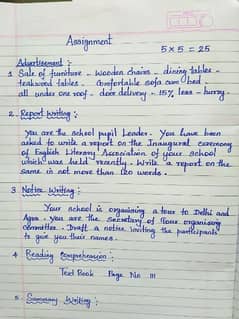 Assignment
5 x 5 = 25
Advertisement :
1. Sale of furniture - wooden chairs - dining tables -
teakwood tables - comfortable sofa cum bed -
all under one roof - door delivery - 15% less - hurry.
2. Report Writing :
You are the school pupil Leader. You have been
asked to write a report on the Inaugural ceremony
of English Literary Association of your school
which was held recently. Write a report on the
same in not more than 120 words.
3 Notice Writing :
Your school is organising a tour to Delhi and
Agra. You are the secretary of tour organising
committee. Draft a notice inviting the participants
to give you their names.
4 Reading Comprehension :
Text Book Page No 111
5 Summary Writing :